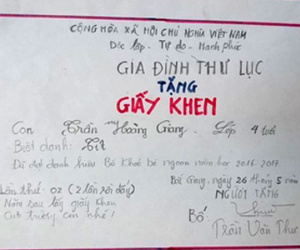 CỘNG HÒA XÃ HỘI CHỦ NGHĨA VIỆT NAM
Độc lập - Tự do - Hạnh phúc
GIA ĐÌNH THƯ LỤC
TẶNG
GIẤY KHEN
Con Trần Hoàng Giang. Lớp 4 tuổi
Biệt danh: Tít
Đã đạt danh hiệu Bé khoẻ bé ngoan năm học 2016-2017
Lần thứ: 02 (2 lần rồi đấy)
Năm sau lấy giấy khen
trường con nhé!
Giang, ngày 26 tháng 5 năm
NGƯỜI TẶNG
Bố
Trần Văn Thư